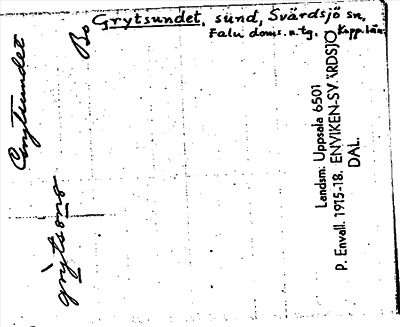 Grytsundet, sund, Svärdsjö sn,
Falu doms. o. tg. Kopp. län
Bo
Grytsundet
grytsonɔ
Landsm. Uppsala 6501
P. Envall. 1915-18. ENVIKEN-SVÄRDSJÖ
DAL.